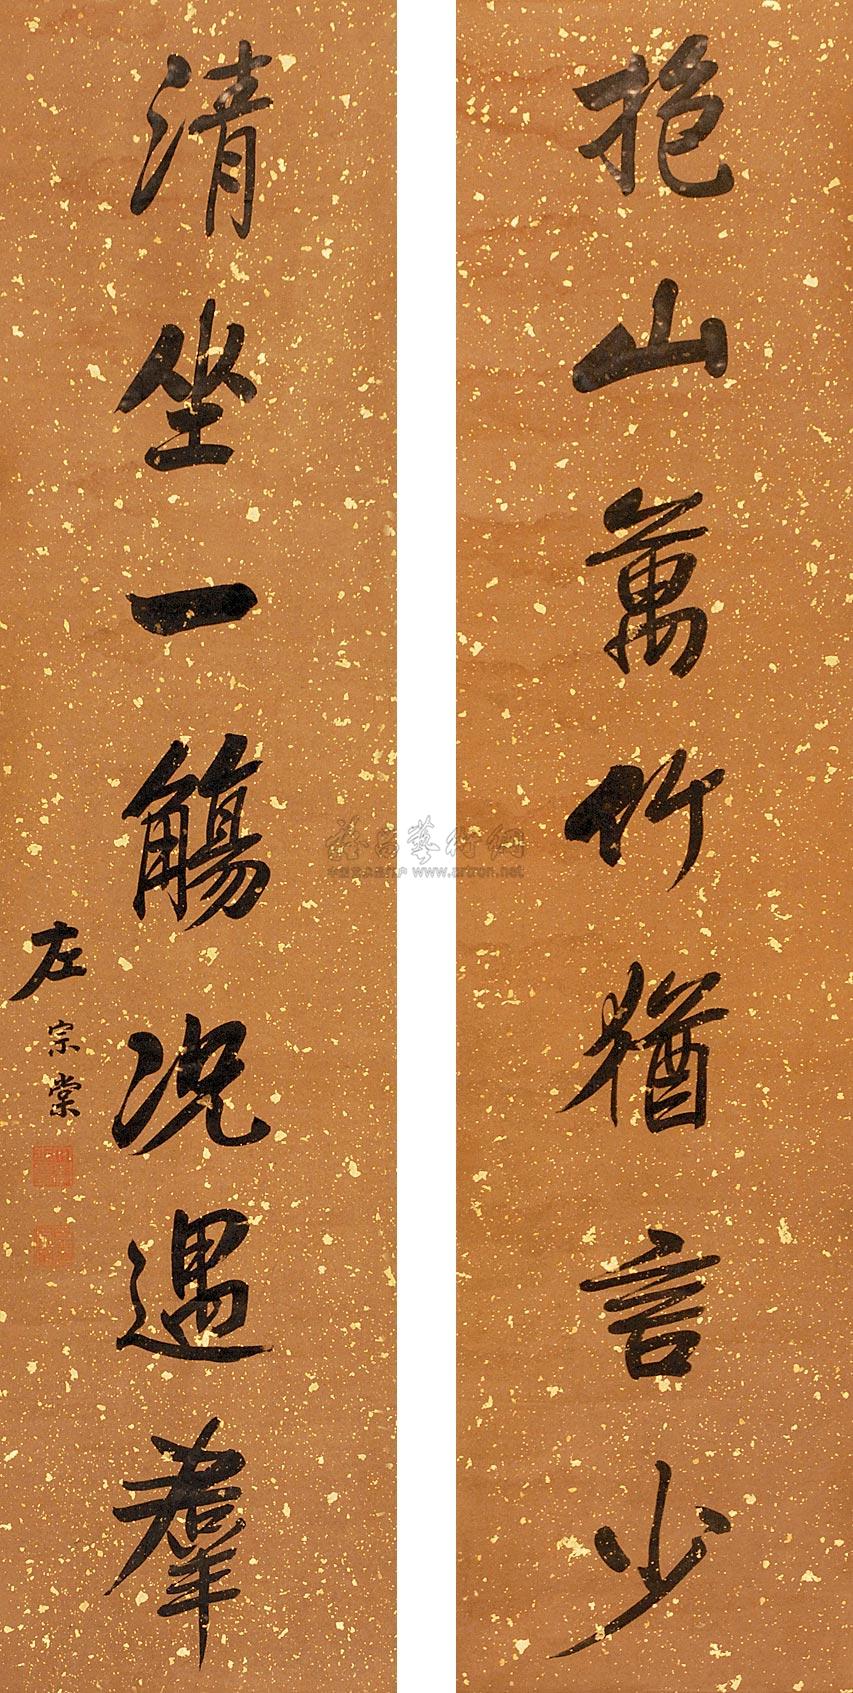 抱山萬竹猶言少
清坐一觴况遇羣
左宗棠
www.artron.net